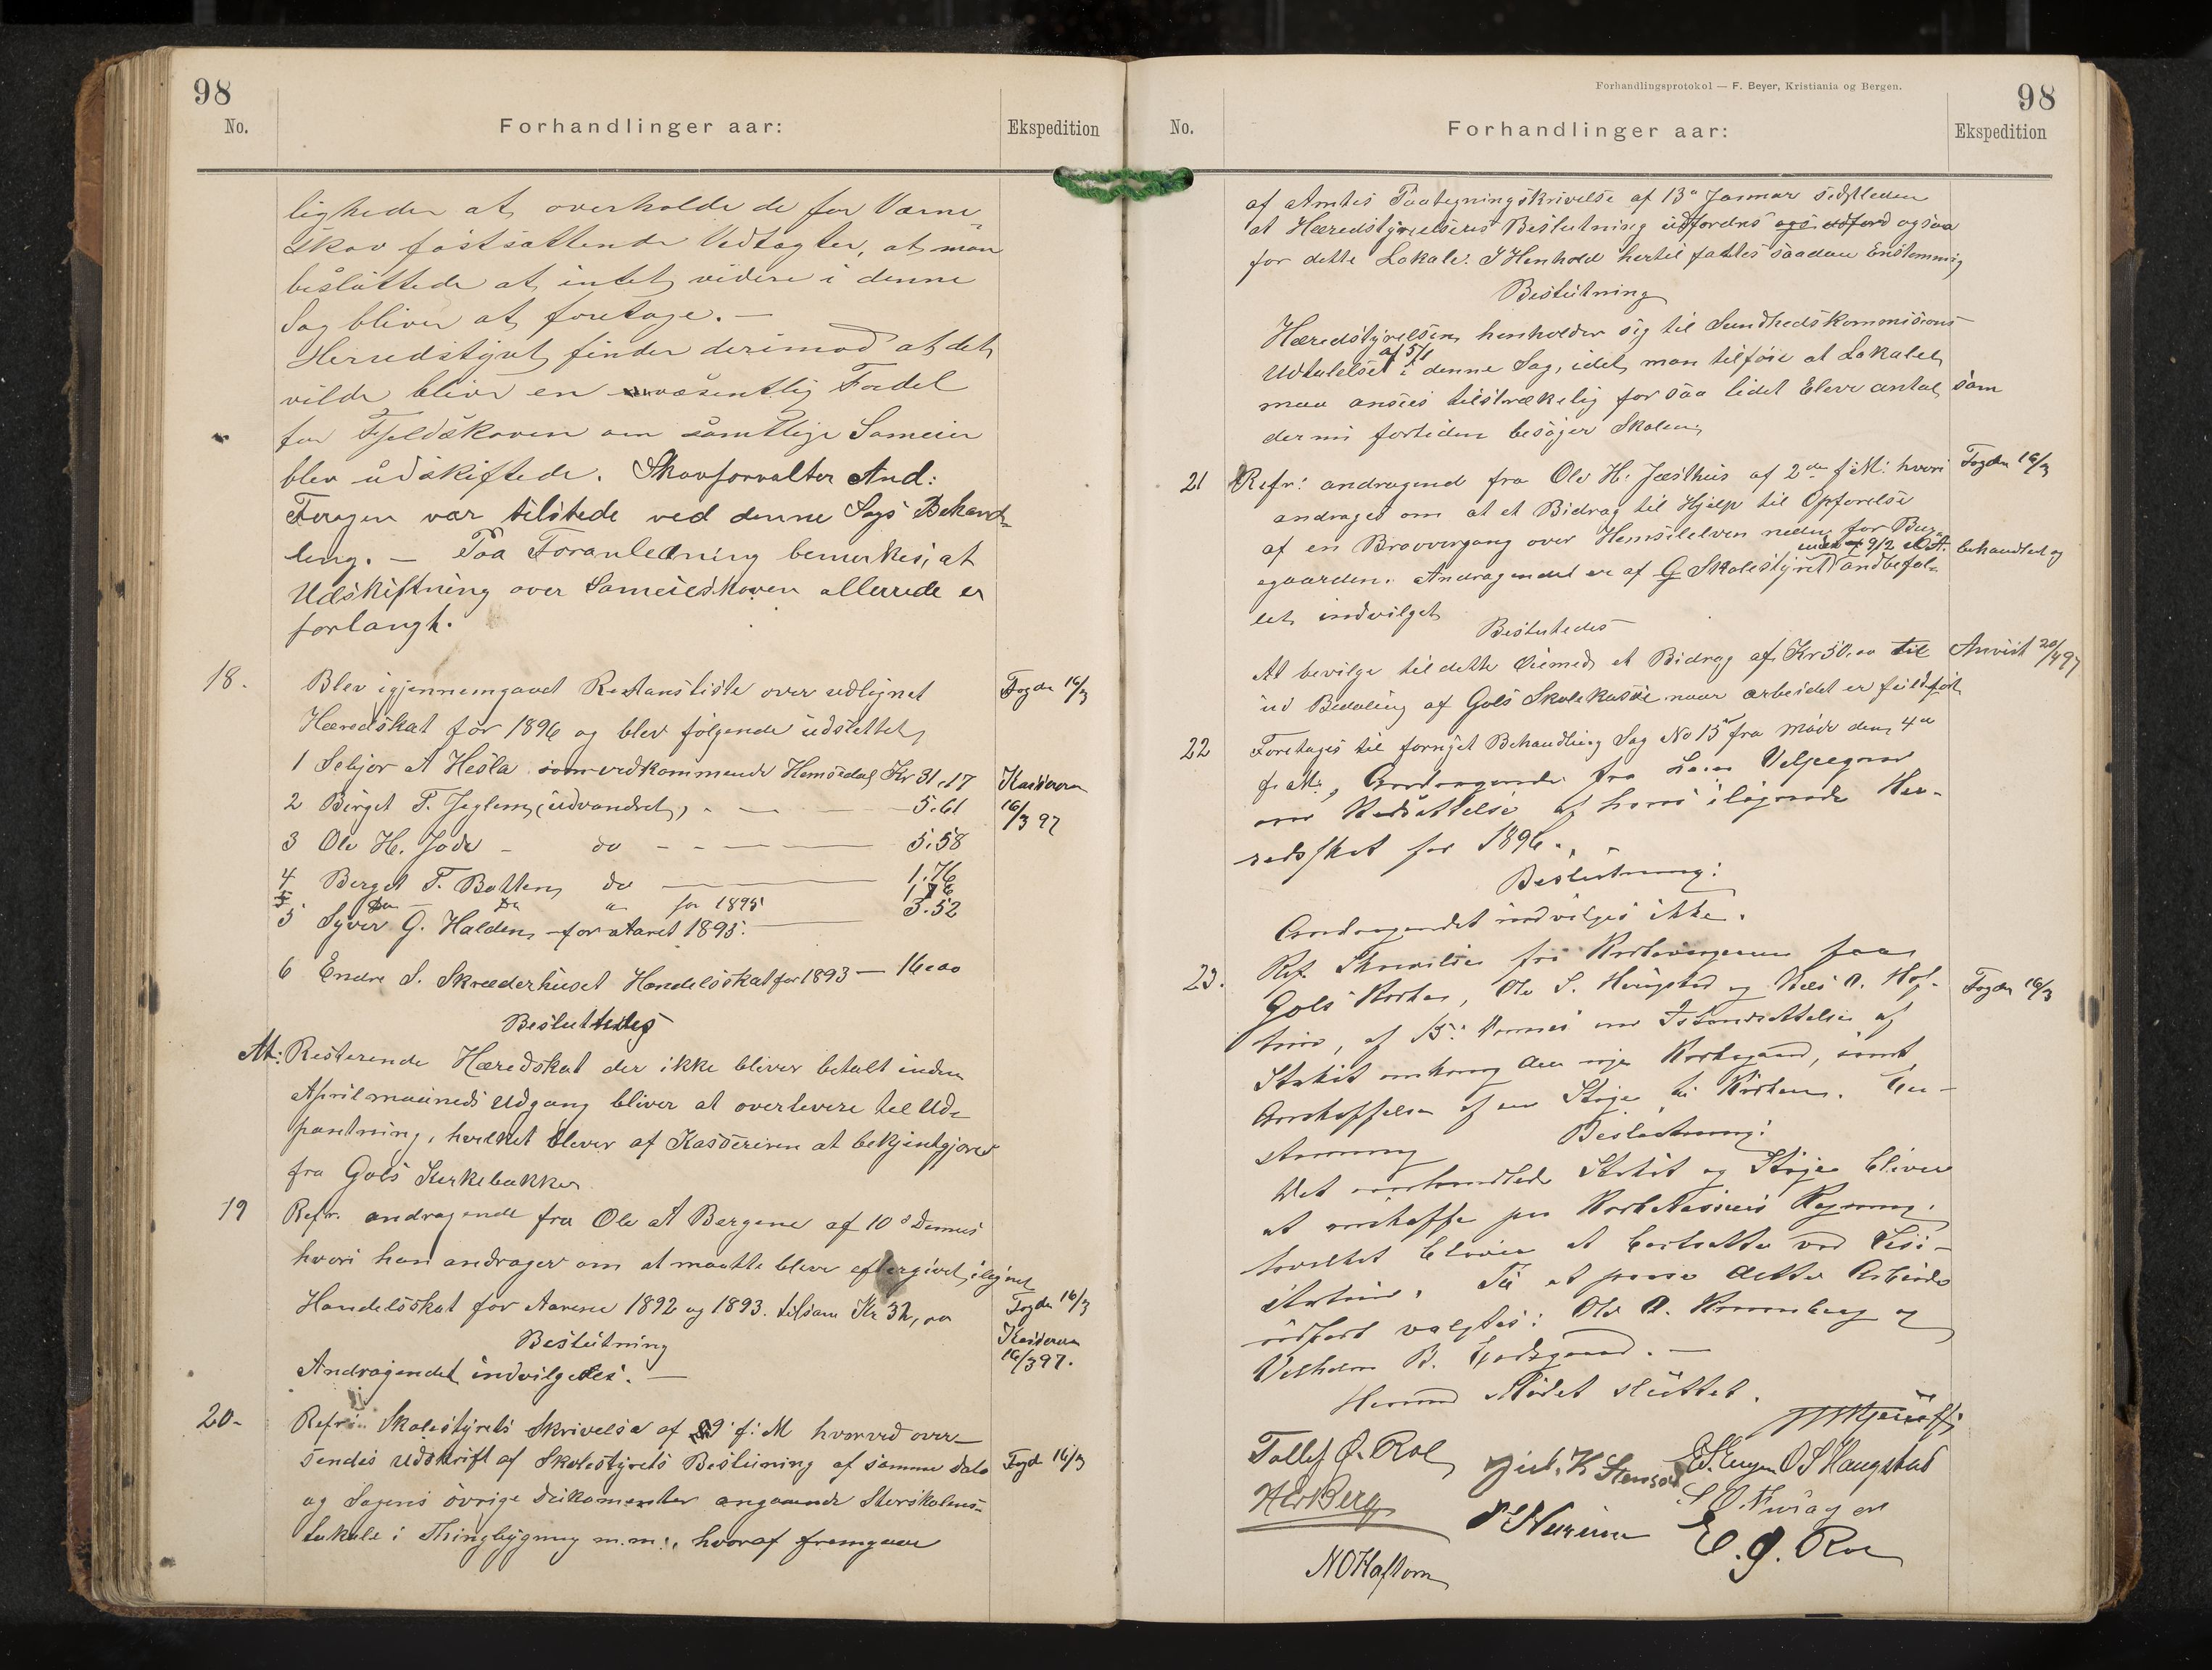 98
No.
Forhandlinger aar:
Ekspedition
ligheder at overholde de for Værne
skov fastsattende Vedtægter, at man
besluttede at intet videre i denne
Sag bliver at foretage. —
Herredstyret finder derimod at det
vilde blive en væsentlig Fordel
for Fjeldskoven om samtlige Sameier
blev udskiftede. Skovforvalter And:
var tilstede ved denne Sags Behand-
ling. — Paa Foranledning bemærkes, at
Udskiftning over Sameieskoven allerede er
forlangt.
18.
Blev igjennemgaaet Restanseliste over udlignet
Fogden 16/3
Herredskat for 1896 og blev følgende udslettet
1 Sebjør A Hesla som vedkommende Hemsedal Kr 31.17
Kassereren
2 Birgit T. (udvandret) - — 5.61
16/3 97
3 Ole H. Jode - do - - — 5.58
4 Berget T. Botten do — 1.76
5 Do — Do " for 1895 1.76
5 Syver G. Halden for Aaret 1895. — 3.52
6 Endre S. Skræderhuset Handelsskat for 1893 — 16.00
Besluttedes
At: Resterende Herredskat der ikke bliver betalt inden
Aprilmaaneds Udgang bliver at overlevere til Ud-
pantning, hvilket bliver af Kassereren at bekjentgjøres
fra Gols Kirkebakke
19
Refr. andragende fra Ole A Bergene af 10d Dennes
hvori han andrager om at maatte blive eftergivet ilignet
Handelsskat for Aarene 1892 og 1893. tilsam Kr 32,00
Fogden 16/3
Beslutning
Kassereren
16/3 97.
Andragendet indvilgedes. —
20-
Refr: Skolestyrets Skrivelse af 9' f: M hvorved over-
sendes Udskrift af Skolestyrets Beslutning af samme Dato
Fogd 16/3
og Sagens øvrige Dokumenter angaaende Storskolens
Lokale i Thingbygning m.m., hvoraf fremgaar
Forhandlingsprotokol — F. Beyer, Kristiania og Bergen.
98
No.
Forhandlinger aar:
Ekspedition
af Amtes Paategningskrivelse af 13de Januar sidstleden
at Herredstyrelsens Beslutning udfordres ogsaa
for dette Lokale. I Henhold hertil fattes saadan Enstemmig
Beslutning
Herredstyrelsen henholder sig til Sundhedskommisions
Udtalelse af 5/1 i denne Sag, idet man tilføie at Lokalet
maa ansees tilstrækelig for saa lidet Elevr antal som
der nu fortiden besøger Skolen
21
Refr: andragend fra Ole H. Jæsthus af 2den f: M: hvori
Fogden 16/3
andrages om at et Bidrag til Hjelp til Opførelse
af en Broovergang over Hemsilelven neden for
under 9/2 behandlet og
egaarden. Andragendet er af Skolestyret andbefal-
let indvilget
Besluttedes
At bevilge til dette Øiemed et Bidrag af Kr 50.00 til
Anvist 20/4 97
ud Bedaling af Gols Skolekasse naar arbeidet er fuldført
22
Foretages til fornyet Behandling Sag No 15 fra Møde den 4de
f. M., Andragende fra Velpegaar
om Nedsættelse af hans ilignede Her-
redsskat for 1896.
Beslutning:
Andragendet indvilges ikke.
23.
Ref. Skrivelse fra Kirkevergerne for
Gols Kirke, Ole S. Haugstad og Nels O. Haf-
Fogden 16/3
tun, af 15: Dennes om Istandsættelse af
Stakit omkring den nye Kirkegaard, samt
Anskaffelse af en Stige til Kirken. En-
stemmig
Beslutning:
Det omhandlede Stakit og Stige bliver
at anskaffe paa Kirkekassens Regning.
hvilket bliver at bortsætte ved Lisi-
tation. Til at passe dette Arbeide
udført valgtes: Ole O. og
Vilhelm B. —
Hermed Mødet sluttet.
Tollef O. Roe
K Stensæt
O S Haugstad
H Berg
E. G. Roe
N O Haftorn